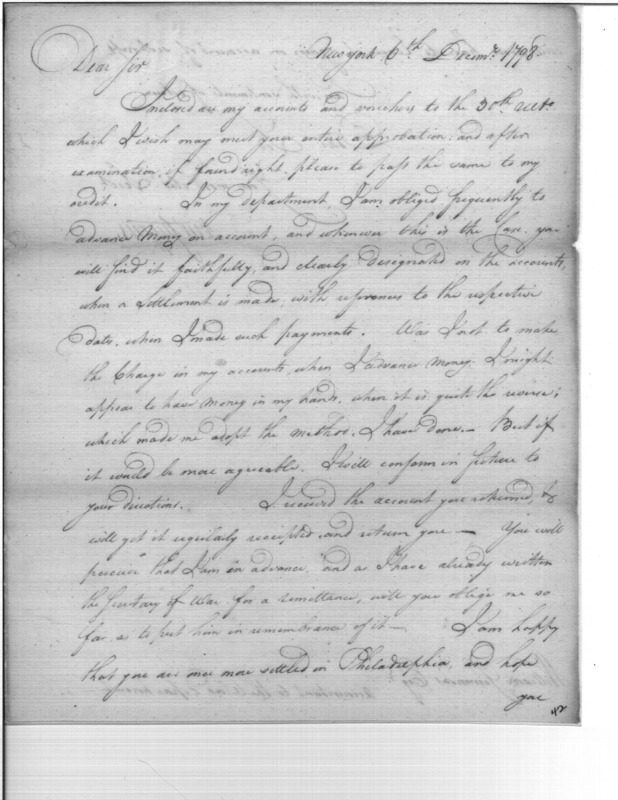 New york 6th Decemr. 1798.
Dear Sir
Inclosed are my accounts and vouchers to the 30th. ulto.
which I wish may meet your entire approbation, and after
examination, if found right, please to pass the same to my
credit. In my department, I am obliged frequently to
advance Money on account, and whenever this is the Case, you
will find it faithfully, and clearly designated in the accounts,
when a settlement is made, with references to the respective
dates, when I made such payments. Was I not to make
the Charge in my accounts, when I advance Money, I might
appear to have Money in my hands, when it is quite the reverse;
which made me adopt the method, I have done. – But if
it would be more agreeable, I will conform in future to
your directions. I received the account you returned, &
will get it regularly receipted, and return you — You will
perceive that I am in advance, and as I have already written
the Secretary of War for a remittance, will you oblige me so
far as to put him in remembrance of it — I am happy
that you are once more settled in Philadelphia, and hope
you
42